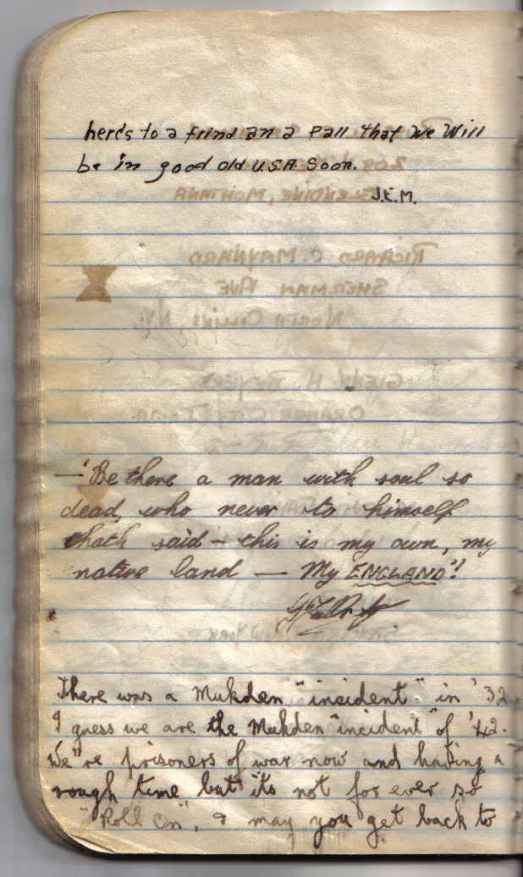 here's to a frind an a Pall that we Will
be in good old USA Soon.
J.E.M.
RICHARD C. MAYNARD
SHERMAN AVE
— 'Be there a man with soul so
dead, who never to himself
hath said – this is my own, my
native land — My ENGLAND'!
There was a Mukden "insident" in '32.
I guess we are the Mukden "incident" of '42.
We're prisoners of war now and having a
rough time but its not for ever so
"Roll on", & may you get back to